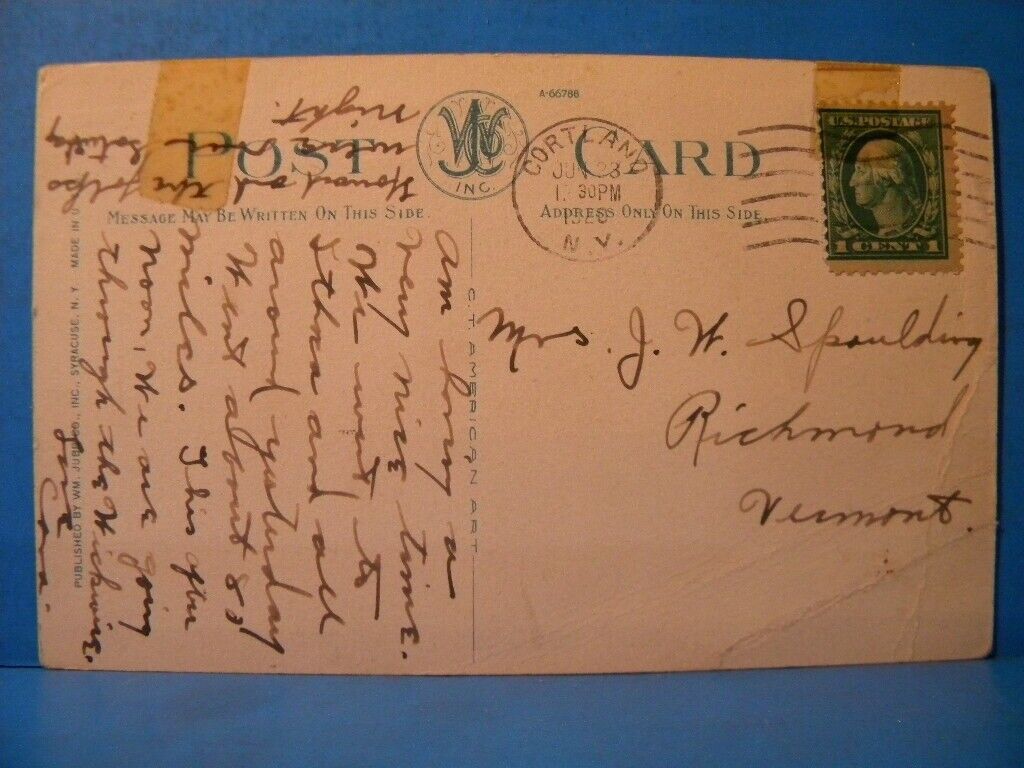 A-66788
POST CARD
WJC
INC.
MESSAGE MAY BE WRITTEN ON THIS SIDE.
ADDRESS ONLY ON THIS SIDE
CORTLAND
30PM
N.Y.
U.S. POSTAGE
1 CENT 1
Am having a
very nice time.
We went to
Ithca and all
around yesterday
Went about 80
miles. This after
noon, we are going
through the
Love
Cora.
Howard and the folks
were at
night.
Mrs. J. W. Spaulding
Richmond
Vermont.
C.T. AMERICAN ART
PUBLISHED BY WM. JUBB CO., INC., SYRACUSE, N.Y. MADE IN U